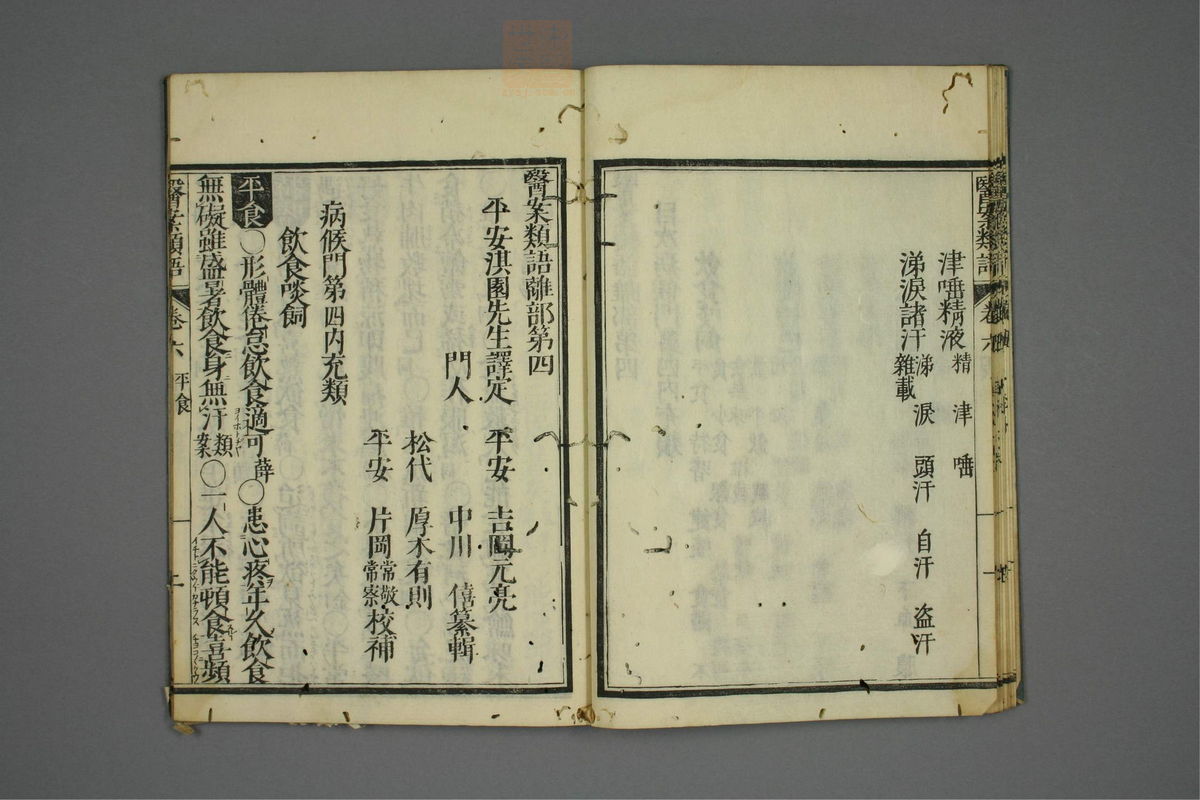 津唾精液 精 津 唾
涕淚諸汗 涕 淚 頭汗 自汗 盗汗
雜載
醫案類語離部第四
平安淇園先生譯定 平安 吉岡元亮
門人 中川 僖纂輯
松代 厚木有則
平安 片岡常敬常察校補
病候門第四内充類
飲食啖飼
平食○形體倦怠飲食適可薛○患心疼年久飲食
無礙雖盛暑飲食身無汗類案○一人不能頓食喜頻
醫案類語 卷六 平食 一